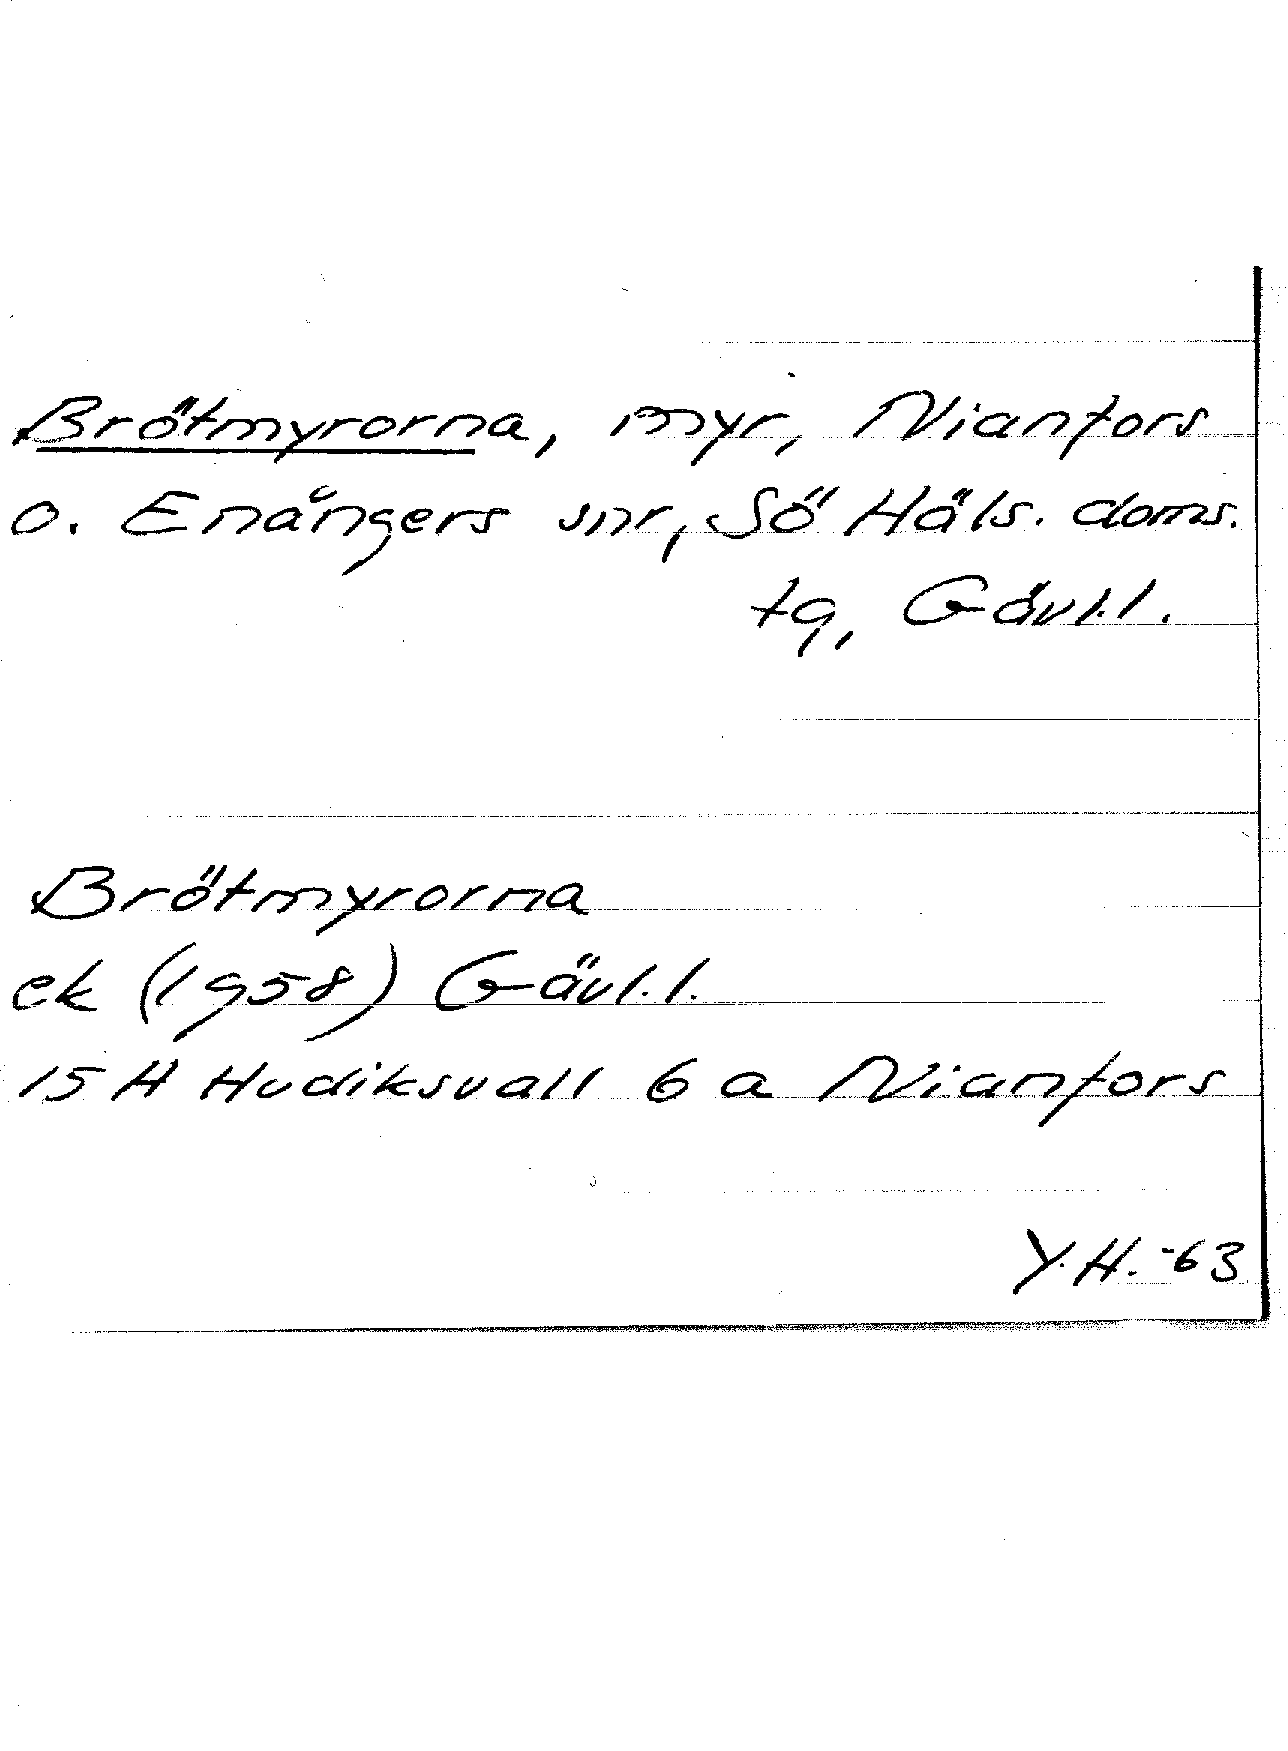 Brötmyrorna, myr, Nianfors
o. Enångers snr, Sö Häls. doms.
tg, Gävl.l.
Brötmyrorna
ek (1958) Gävl.l.
15 H Hudiksvall 6 a Nianfors
Y.H. -63